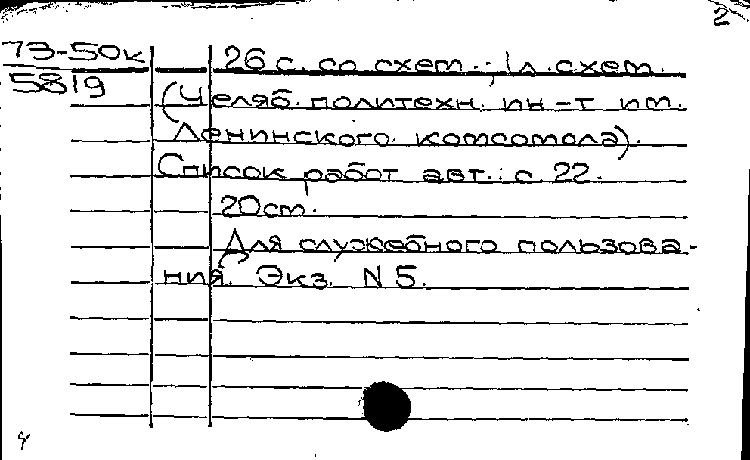 2
73-50к
5819
26 с. со схем.; 1 л. схем.
(Челяб. политехн. ин-т им.
Ленинского комсомола).
Список работ авт.: с. 22.
20 см.
Для служебного пользова-
ния. Экз. N 5.